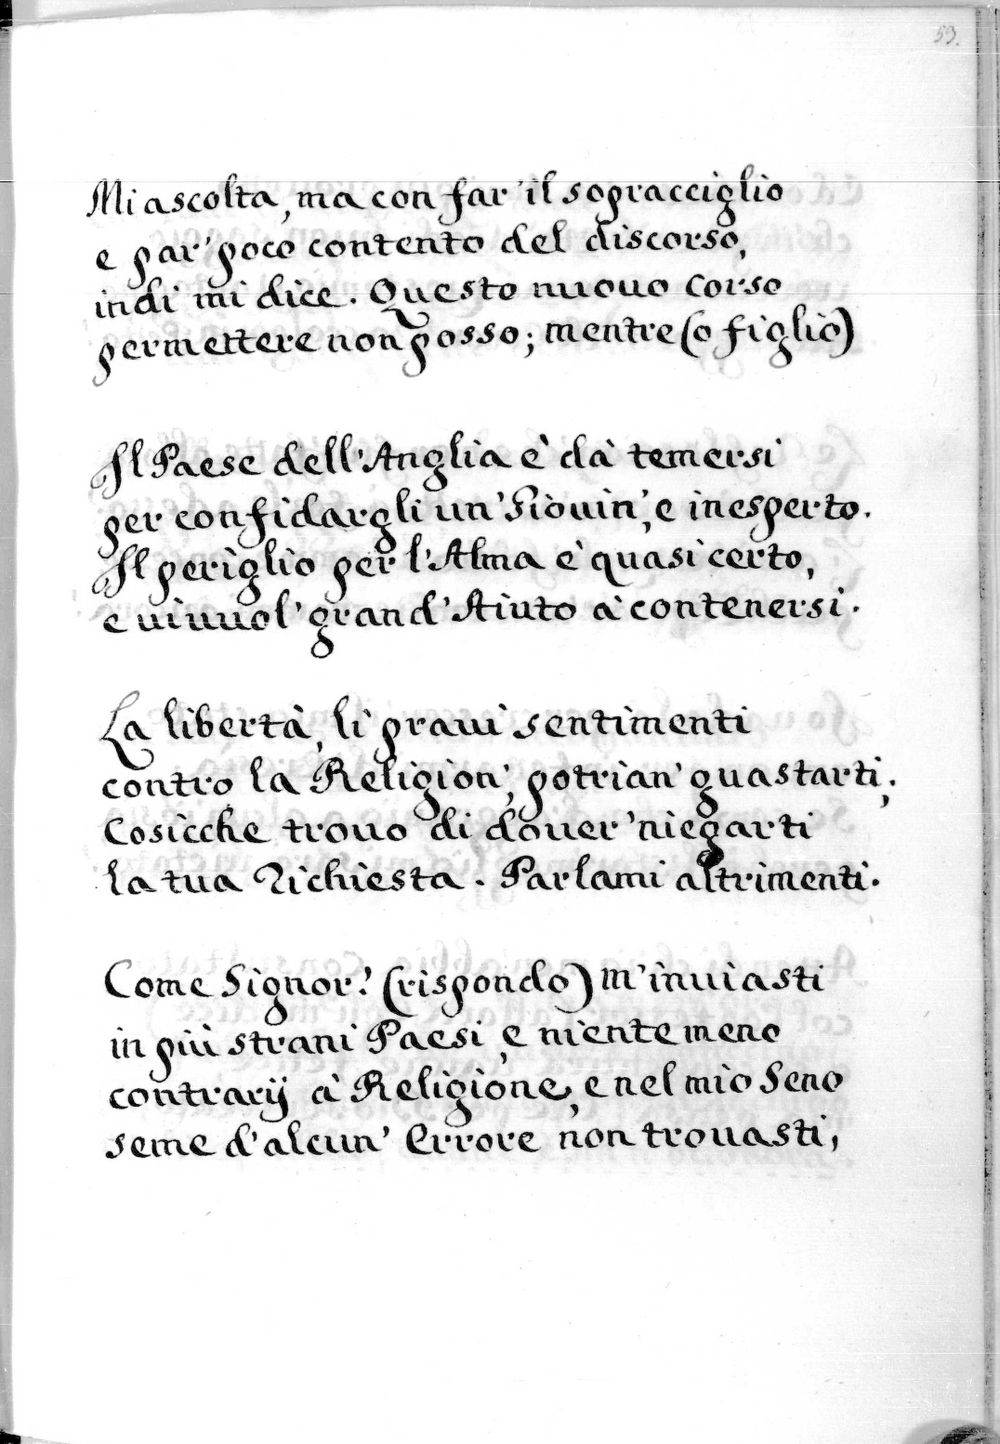 53.
Mi ascolta, ma con far' il sopracciglio
e par' poco contento del discorso,
indi mi dice. Questo nuouo corso
permettere non posso; mentre (o figlio)
Il Paese dell'Anglia è dà temersi
per confidargli un' Giouin', e inesperto.
Il periglio per l'Alma è quasi certo,
e ui uuol' grand' Aiuto à contenersi.
La libertà, li praui sentimenti
contro la Religion', potrian' guastarti;
Cosicche trouo di douer' niegarti
la tua Richiesta. Parlami altrimenti.
Come Signor? (rispondo) m'inuiasti
in più strani Paesi, e nientemeno
contrarij à Religione, e nel mio Seno
seme d'alcun' Errore non trouasti,